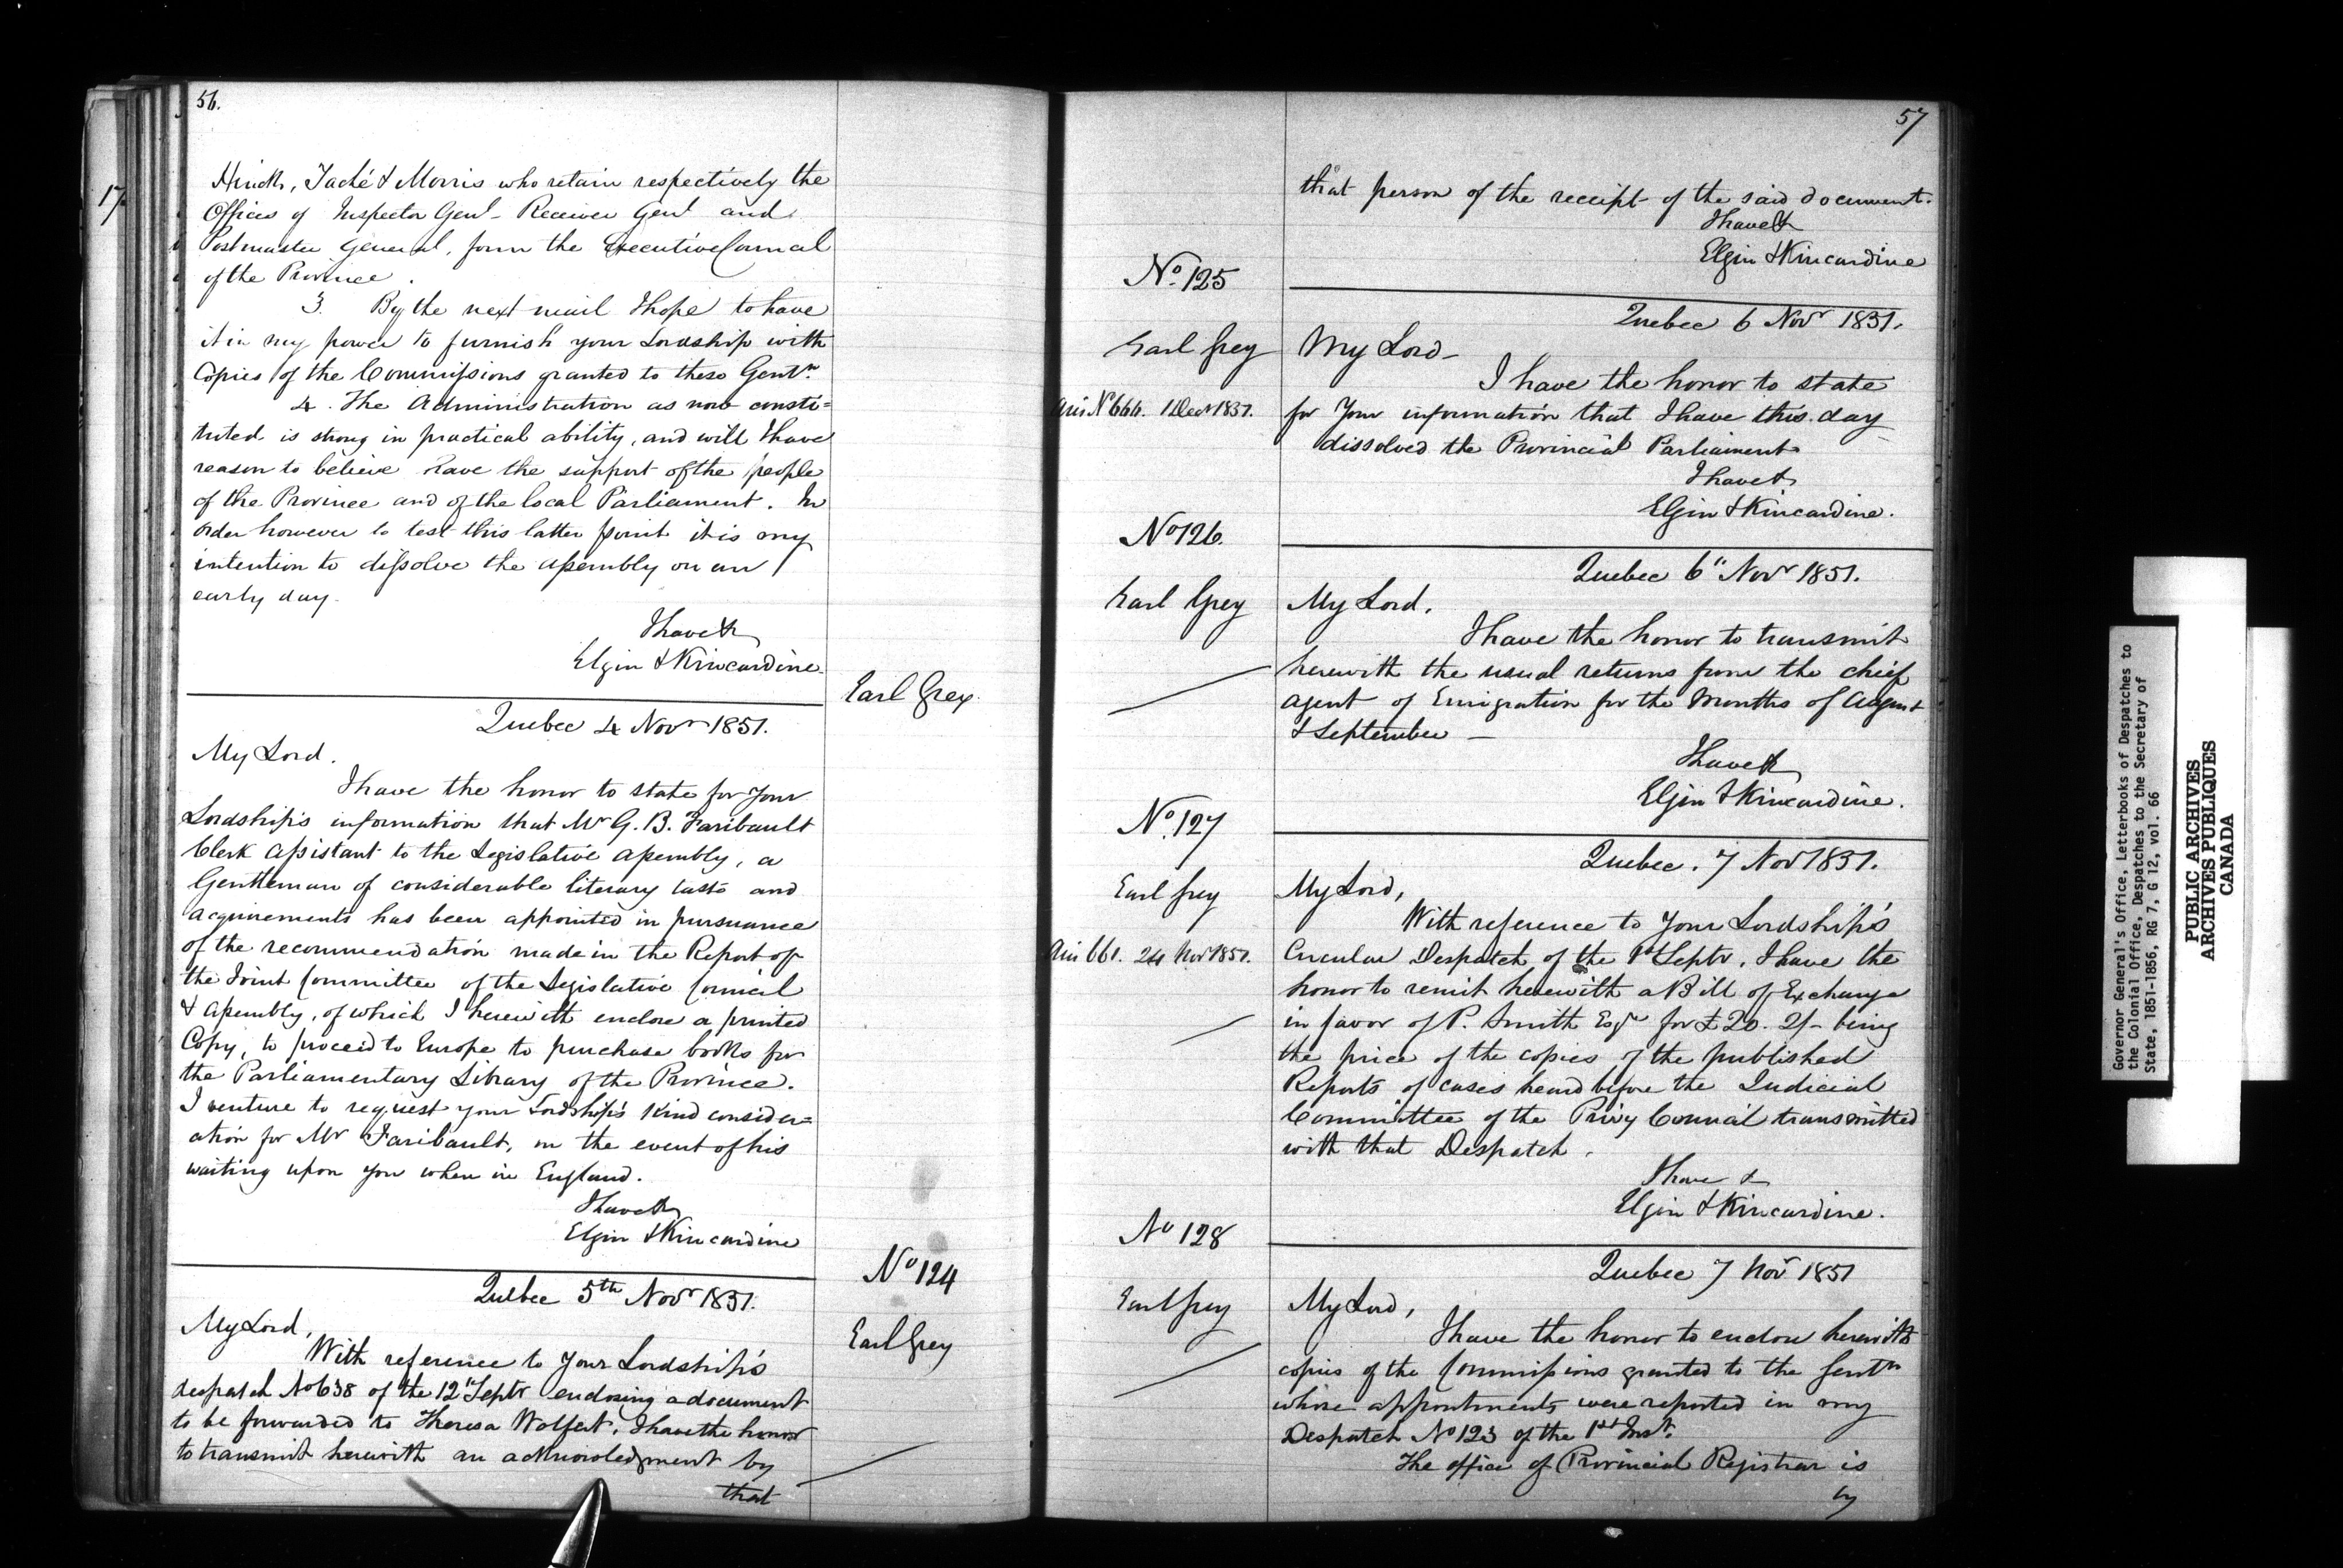 56.
Hincks, Taché & Morris who retain respectively the
Offices of Inspector Genl - Receiver Genl and
Postmaster General, form the Executive Council
of the Province.
3. By the next mail I hope to have
it in my power to furnish your Lordship with
Copies of the Commissions granted to these Gentn.
4. The Administration as now consti=
tuted is strong in practical ability, and will I have
reason to believe have the support of the people
of the Province and of the local Parliament. In
order however to test this latter point it is my
intention to dissolve the Assembly on an
early day.
I have &
Elgin & Kincardine
Earl Grey.
Quebec 4 Novr 1851.
My Lord.
I have the honor to state for Your
Lordship's information that Mr G. B. Faribault
Clerk Assistant to the Legislative Assembly, a
Gentleman of considerable literary taste and
acquirements has been appointed in pursuance
of the recommendation made in the Report of
the Joint Committee of the Legislative Council
& Assembly, of which I herewith enclose a printed
Copy, to proceed to Europe to purchase books for
the Parliamentary Library of the Province.
I venture to request your Lordship's kind consider=
ation for Mr Faribault, in the event of his
waiting upon you when in England.
I have &
Elgin & Kincardine
No 124
Quebec 5th Novr 1851.
Earl Grey
My Lord,
With reference to Your Lordship's
despatch No 638 of the 12" Septr enclosing a document
to be forwarded to Theresa Wolfert, I have the honor
to transmit herewith an acknowledgment by
that
57
that person of the receipt of the said document.
I have &
Elgin & Kincardine
No. 125
Quebec 6 Novr 1851.
Earl Grey
My Lord -
I have the honor to state
Ans No 666. 1 Decr 1851.
for Your information that I have this day
dissolved the Provincial Parliament
I have &
Elgin & Kincardine.
No 126.
Quebec 6" Novr 1851.
Earl Grey
My Lord.
I have the honor to transmit
herewith the usual returns from the chief
agent of Emigration for the Months of August
& September -
I have &
Elgin & Kincardine.
No. 127
Quebec. 7 Novr 1851.
Earl Grey
My Lord,
With reference to Your Lordship's
Ans 661. 24 Novr 1851.
Circular Despatch of the 1st Septr. I have the
honor to remit herewith a Bill of Exchange
in favor of P. Smith Esqre for £20. 2/- being
the price of the copies of the published
Reports of cases heard before the Judicial
Committee of the Privy Council transmitted
with that Despatch.
I have &
Elgin & Kincardine.
No 128
Quebec 7 Novr 1851
Earl Grey
My Lord,
I have the honor to enclose herewith
copies of the Commissions granted to the Gentn
whose appointments were reported in my
Despatch No 123 of the 1st Inst.
The office of Provincial Registrar is
by
Governor General's Office, Letterbooks of Despatches to
the Colonial Office, Despatches to the Secretary of
State, 1851-1856, RG 7, G 12, vol. 66
PUBLIC ARCHIVES
ARCHIVES PUBLIQUES
CANADA
17